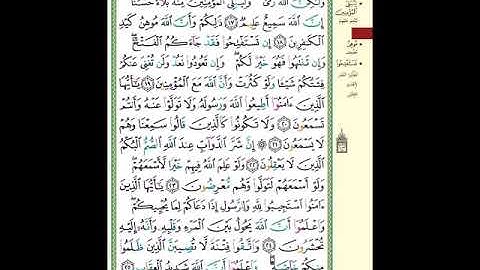 وَلَٰكِنَّ ٱللَّهَ رَمَىٰ وَلِيُبْلِىَ ٱلْمُؤْمِنِينَ مِنْهُ بَلَآءً حَسَنًا
إِنَّ ٱللَّهَ سَمِيعٌ عَلِيمٌ ١٧ ذَٰلِكُمْ وَأَنَّ ٱللَّهَ مُوهِنُ كَيْدِ
ٱلْكَٰفِرِينَ ١٨ إِن تَسْتَفْتِحُوا۟ فَقَدْ جَآءَكُمُ ٱلْفَتْحُ
وَإِن تَنتَهُوا۟ فَهُوَ خَيْرٌ لَّكُمْ وَإِن تَعُودُوا۟ نَعُدْ وَلَن تُغْنِىَ عَنكُمْ
فِئَتُكُمْ شَيْـًٔا وَلَوْ كَثُرَتْ وَأَنَّ ٱللَّهَ مَعَ ٱلْمُؤْمِنِينَ ١٩ يَٰٓأَيُّهَا
ٱلَّذِينَ ءَامَنُوٓا۟ أَطِيعُوا۟ ٱللَّهَ وَرَسُولَهُۥ وَلَا تَوَلَّوْا۟ عَنْهُ وَأَنتُمْ
تَسْمَعُونَ ٢٠ وَلَا تَكُونُوا۟ كَٱلَّذِينَ قَالُوا۟ سَمِعْنَا وَهُمْ
لَا يَسْمَعُونَ ٢١ إِنَّ شَرَّ ٱلدَّوَآبِّ عِندَ ٱللَّهِ ٱلصُّمُّ ٱلْبُكْمُ
ٱلَّذِينَ لَا يَعْقِلُونَ ٢٢ وَلَوْ عَلِمَ ٱللَّهُ فِيهِمْ خَيْرًا لَّأَسْمَعَهُمْ
وَلَوْ أَسْمَعَهُمْ لَتَوَلَّوا۟ وَّهُم مُّعْرِضُونَ ٢٣ يَٰٓأَيُّهَا ٱلَّذِينَ
ءَامَنُوا۟ ٱسْتَجِيبُوا۟ لِلَّهِ وَلِلرَّسُولِ إِذَا دَعَاكُمْ لِمَا يُحْيِيكُمْ
وَٱعْلَمُوٓا۟ أَنَّ ٱللَّهَ يَحُولُ بَيْنَ ٱلْمَرْءِ وَقَلْبِهِۦ وَأَنَّهُۥٓ إِلَيْهِ
تُحْشَرُونَ ٢٤ وَٱتَّقُوا۟ فِتْنَةً لَّا تُصِيبَنَّ ٱلَّذِينَ ظَلَمُوا۟
مِنكُمْ خَآصَّةً وَٱعْلَمُوٓا۟ أَنَّ ٱللَّهَ شَدِيدُ ٱلْعِقَابِ ٢٥